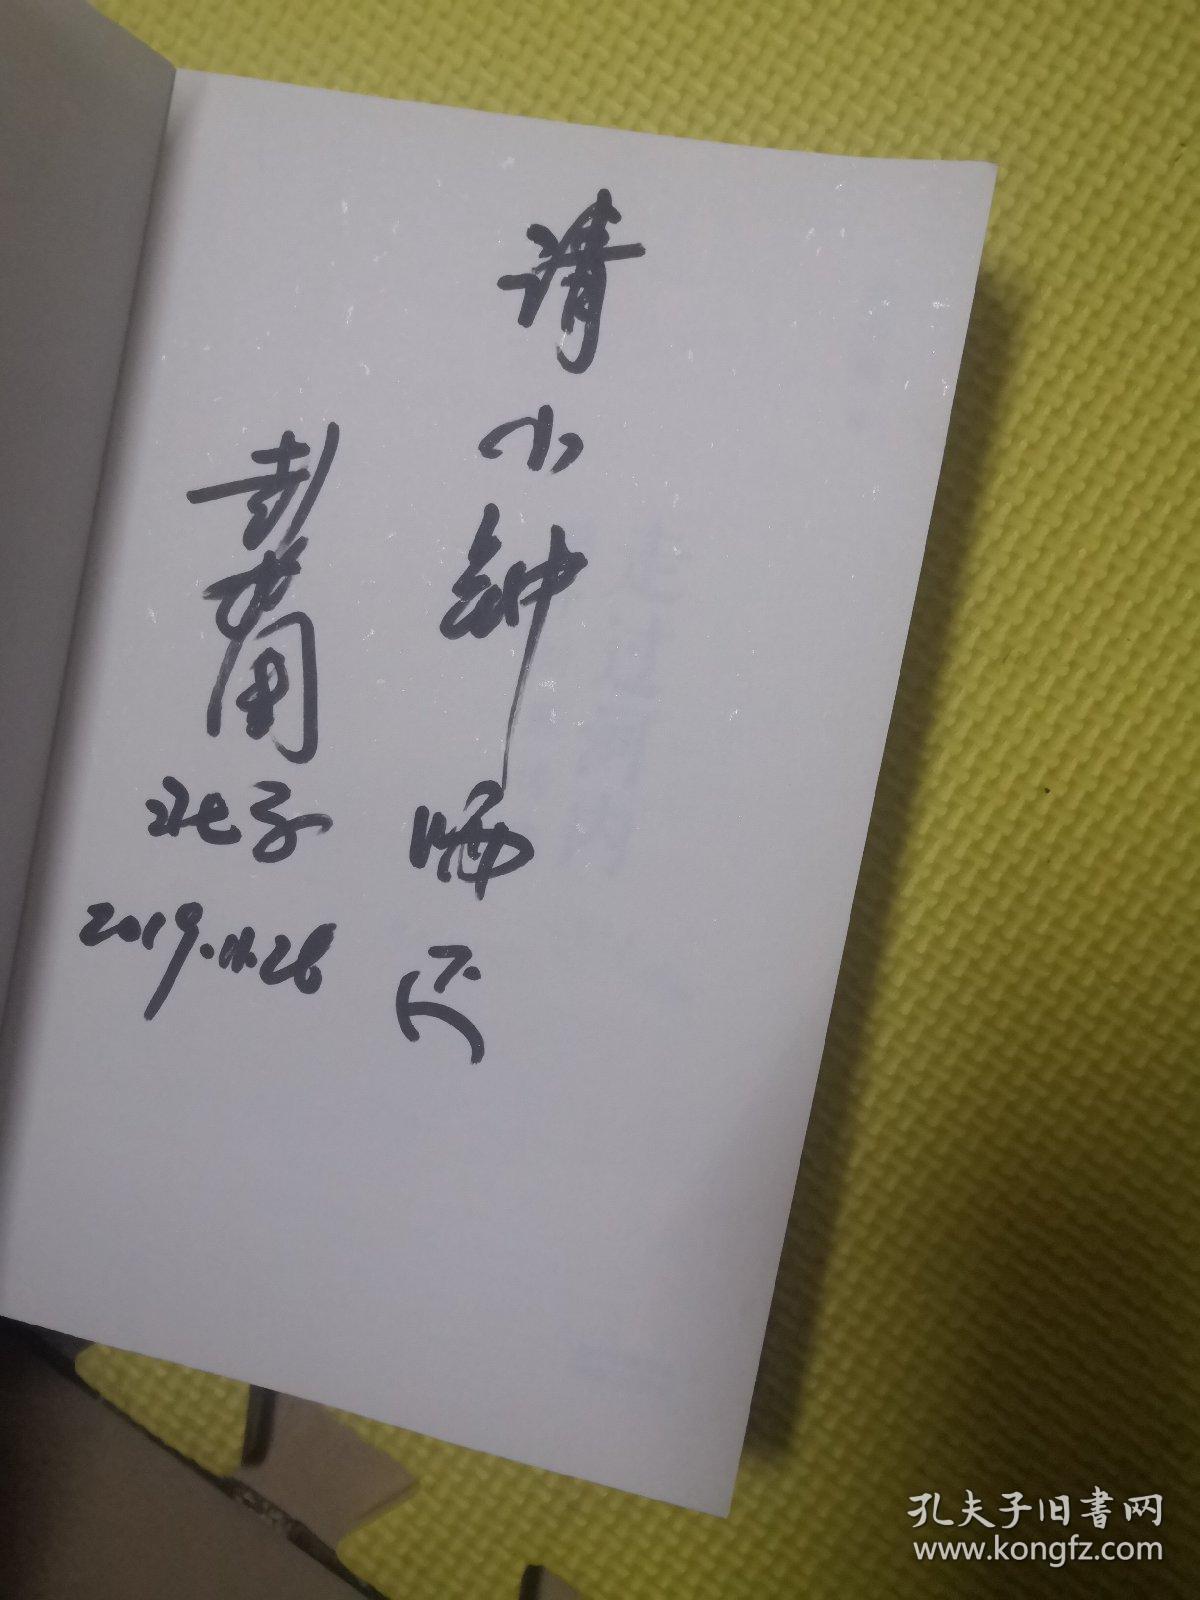 请小钟晒正
彭
北京
2019.11.28
孔夫子旧书网
www.kongfz.com